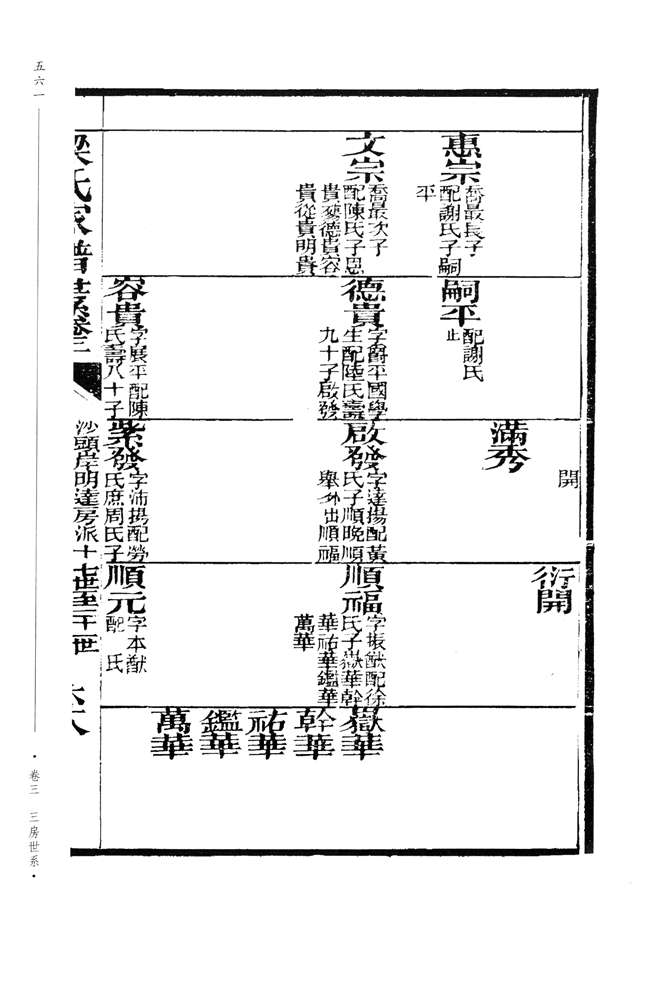 惠宗
喬最長子
配謝氏子嗣
平
文宗
喬最次子
配陳氏子恩
貴發德貴容
貴從貴明貴
嗣平
配謝氏
止
德貴
字爵平國學
生配陸氏壽
九十子啟發
容貴
字展平配陳
氏壽八十子
開
滿秀
啟發
字達揚配黃
氏子順晚順
舉外出順福
紫發
字沛揚配勞
氏庶周氏子
衍開
順福
字振猷配徐
氏子嶽華幹
華祐華鑑華
萬華
順元
字本猷
配 氏
嶽華
幹華
祐華
鑑華
萬華
梁氏家譜世系卷三
沙頭岸明達房派十七世至二十一世
五六一
·卷三 三房世系·